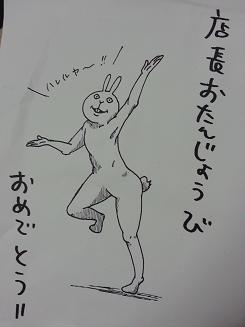 店長おたんじょうび
ハレルヤ〜!!
おめでとう!!